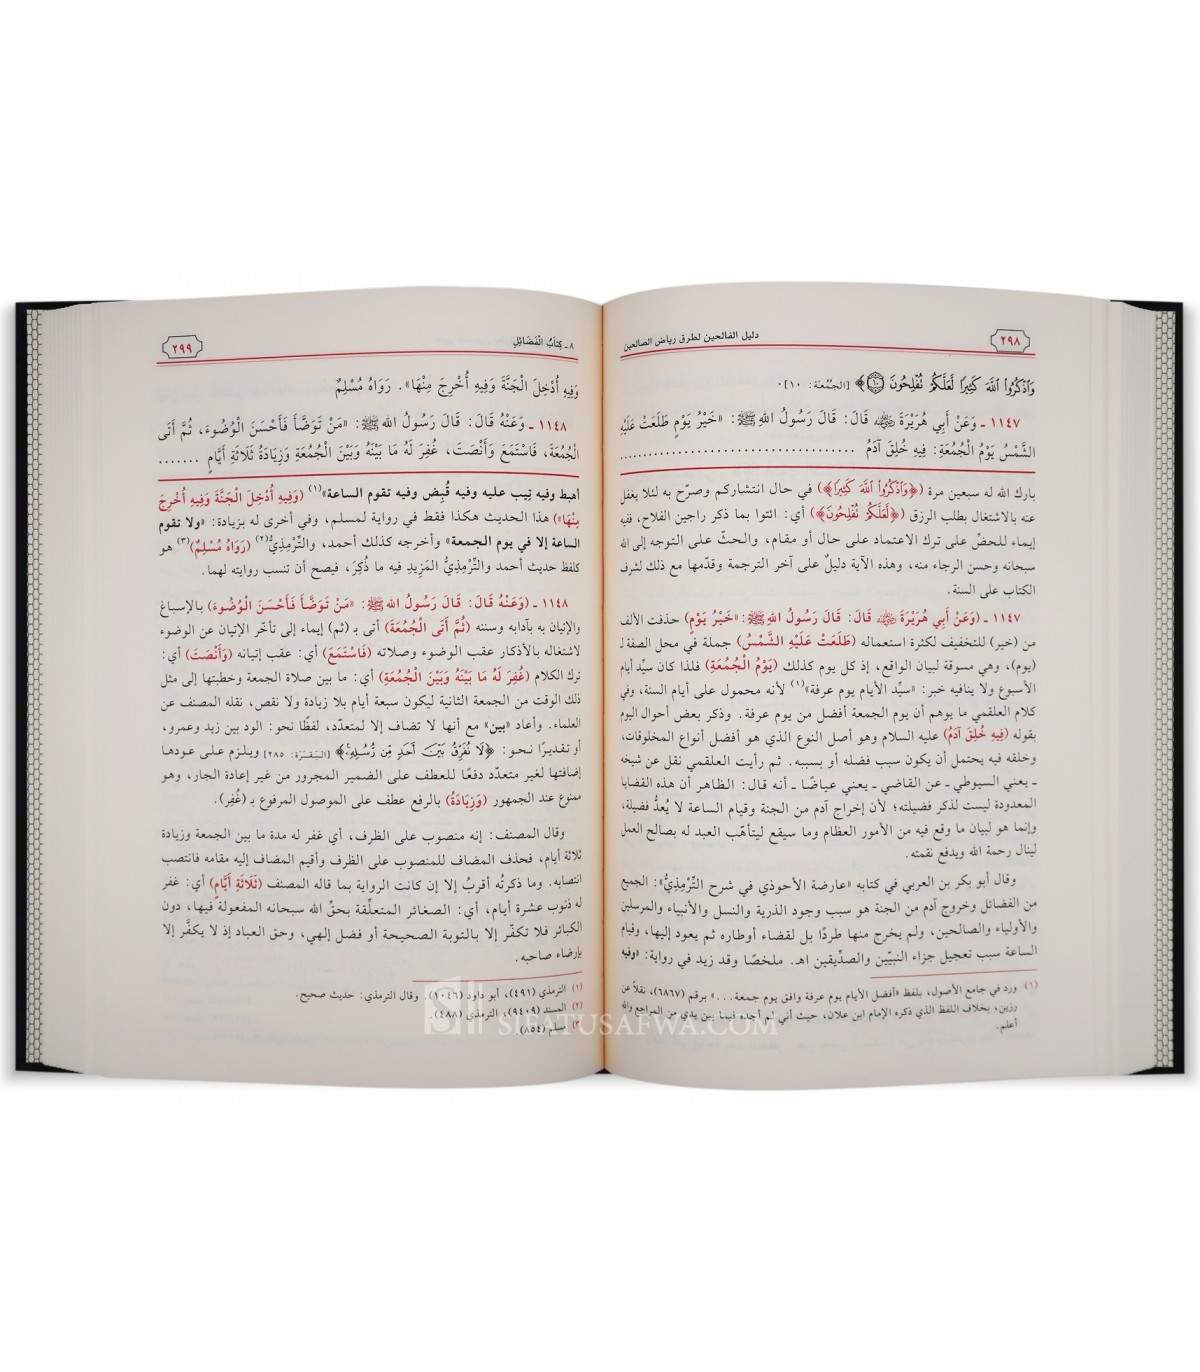 ٢٩٨
دليل الفالحين لطرق رياض الصالحين
وَاذْكُرُوا اللَّهَ كَثِيرًا لَعَلَّكُمْ تُفْلِحُونَ ﴿١٠﴾ [الجُمُعَة: ١٠].
١١٤٧ - وَعَنْ أَبِي هُرَيْرَةَ ﵁ قَالَ: قَالَ رَسُولُ اللهِ ﷺ: «خَيْرُ يَوْمٍ طَلَعَتْ عَلَيْهِ
الشَّمْسُ يَوْمُ الْجُمُعَةِ: فِيهِ خُلِقَ آدَمُ ......................................
بارك الله له سبعين مرة (﴿وَاذْكُرُوا اللَّهَ كَثِيرًا﴾) في حال انتشاركم وصرّح به لئلا يغفل
عنه بالاشتغال بطلب الرزق (﴿لَعَلَّكُمْ تُفْلِحُونَ﴾) أي: ائتوا بما ذكر راجين الفلاح، ففيه
إيماء للحضّ على ترك الاعتماد على حال أو مقام، والحثّ على التوجه إلى الله
سبحانه وحسن الرجاء منه، وهذه الآية دليلٌ على آخر الترجمة وقدّمها مع ذلك لشرف
الكتاب على السنة.
١١٤٧ - (وَعَنْ أَبِي هُرَيْرَةَ ﵁ قَالَ: قَالَ رَسُولُ اللهِ ﷺ: «خَيْرُ يَوْمٍ) حذفت الألف
من (خير) للتخفيف لكثرة استعماله (طَلَعَتْ عَلَيْهِ الشَّمْسُ) جملة في محل الصفة لـ
(يوم)، وهي مسوقة لبيان الواقع، إذ كل يوم كذلك (يَوْمُ الْجُمُعَةِ) فلذا كان سيِّد أيام
الأسبوع ولا ينافيه خبر: «سيِّد الأيام يوم عرفة»(١) لأنه محمول على أيام السنة، وفي
كلام العلقمي ما يوهم أن يوم الجمعة أفضل من يوم عرفة. وذكر بعض أحوال اليوم
بقوله (فِيهِ خُلِقَ آدَمُ) عليه السلام وهو أصل النوع الذي هو أفضل أنواع المخلوقات،
وخلقه فيه يحتمل أن يكون سبب فضله أو بسببه. ثم رأيت العلقمي نقل عن شيخه
- يعني السيوطي - عن القاضي - يعني عياضًا - أنه قال: الظاهر أن هذه القضايا
المعدودة ليست لذكر فضيلته؛ لأن إخراج آدم من الجنة وقيام الساعة لا يُعدُّ فضيلة،
وإنما هو لبيان ما وقع فيه من الأمور العظام وما سيقع ليتأهّب العبد له بصالح العمل
لينال رحمة الله ويدفع نقمته.
وقال أبو بكر بن العربي في كتابه «عارضة الأحوذي في شرح التِّرْمِذِيُّ»: الجميع
من الفضائل وخروج آدم من الجنة هو سبب وجود الذرية والنسل والأنبياء والمرسلين
والأولياء والصالحين، ولم يخرج منها طردًا بل لقضاء أوطاره ثم يعود إليها، وقيام
الساعة سبب تعجيل جزاء النبيّين والصدِّيقين اهـ. ملخصًا وقد زيد في رواية: «وفيه
(١) ورد في جامع الأصول، بلفظ «أفضل الأيام يوم عرفة وافق يوم جمعة...» برقم (٦٨٦٧)، نقلاً عن
رزين، بخلاف اللفظ الذي ذكره الإمام ابن علان، حيث أني لم أجده فيما بين يدي من المراجع والله
أعلم.
٨ - كِتَابُ الْفَضَائِلِ
٢٩٩
وَفِيهِ أُدْخِلَ الْجَنَّةَ وَفِيهِ أُخْرِجَ مِنْهَا». رَوَاهُ مُسْلِمٌ
١١٤٨ - وَعَنْهُ قَالَ: قَالَ رَسُولُ اللهِ ﷺ: «مَنْ تَوَضَّأَ فَأَحْسَنَ الْوُضُوءَ، ثُمَّ أَتَى
الْجُمُعَةَ، فَاسْتَمَعَ وَأَنْصَتَ، غُفِرَ لَهُ مَا بَيْنَهُ وَبَيْنَ الْجُمُعَةِ وَزِيَادَةُ ثَلَاثَةِ أَيَّامٍ .......
أهبط وفيه تِيب عليه وفيه قُبِض وفيه تقوم الساعة»(١) (وَفِيهِ أُدْخِلَ الْجَنَّةَ وَفِيهِ أُخْرِجَ
مِنْهَا») هذا الحديث هكذا فقط في رواية لمسلم، وفي أخرى له بزيادة: «ولا تقوم
الساعة إلا في يوم الجمعة» وأخرجه كذلك أحمد، والتِّرْمِذِيُّ(٢) (رَوَاهُ مُسْلِمٌ)(٣) هو
كلفظ حديث أحمد والتِّرْمِذِيُّ المَزِيدِ فيه ما ذُكِرَ، فيصح أن تنسب روايته لهما.
١١٤٨ - (وَعَنْهُ قَالَ: قَالَ رَسُولُ اللهِ ﷺ: «مَنْ تَوَضَّأَ فَأَحْسَنَ الْوُضُوءَ) بالإسباغ
والإتيان به بآدابه وسننه (ثُمَّ أَتَى الْجُمُعَةَ) أتى بـ (ثم) إيماء إلى تأخّر الإتيان عن الوضوء
لاشتغاله بالأذكار عقب الوضوء وصلاته (فَاسْتَمَعَ) أي: عقب إتيانه (وَأَنْصَتَ) أي:
ترك الكلام (غُفِرَ لَهُ مَا بَيْنَهُ وَبَيْنَ الْجُمُعَةِ) أي: ما بين صلاة الجمعة وخطبتها إلى مثل
ذلك الوقت من الجمعة الثانية ليكون سبعة أيام بلا زيادة ولا نقص، نقله المصنف عن
العلماء. وأعاد «بين» مع أنها لا تضاف إلا لمتعدّد، لفظًا نحو: الود بين زيد وعمرو،
أو تقديرًا نحو: ﴿لَا نُفَرِّقُ بَيْنَ أَحَدٍ مِّن رُّسُلِهِ﴾ [البَقَرَة: ٢٨٥] ويلزم على عودها
إضافتها لغير متعدّد دفعًا للعطف على الضمير المجرور من غير إعادة الجار، وهو
ممنوع عند الجمهور (وَزِيَادَةُ) بالرفع عطف على الموصول المرفوع بـ (غُفِر).
وقال المصنف: إنه منصوب على الظرف، أي غفر له مدة ما بين الجمعة وزيادة
ثلاثة أيام، فحذف المضاف للمنصوب على الظرف وأقيم المضاف إليه مقامه فانتصب
انتصابه. وما ذكرتُه أقربُ إلا إن كانت الرواية بما قاله المصنف (ثَلَاثَةِ أَيَّامٍ) أي: غفر
له ذنوب عشرة أيام، أي: الصغائر المتعلِّقة بحقِّ الله سبحانه المفعولة فيها، دون
الكبائر فلا تكفّر إلا بالتوبة الصحيحة أو فضل إلهي، وحق العباد إذ لا يكفَّر إلا
بإرضاء صاحبه.
(١) الترمذي (٤٩١)، أبو داود (١٠٤٦). وقال الترمذي: حديث صحيح.
(٢) المسند (٩٤٠٩)، الترمذي (٤٨٨).
(٣) مسلم (٨٥٤)
SIFATUSAFWA.COM